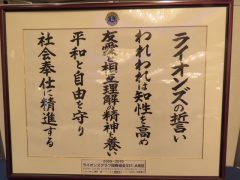 ライオンズの誓い
われわれは知性を高め
友愛と相互理解の精神を養い
平和と自由を守り
社会奉仕に精進する
2009-2010
ライオンズクラブ国際協会331-A地区